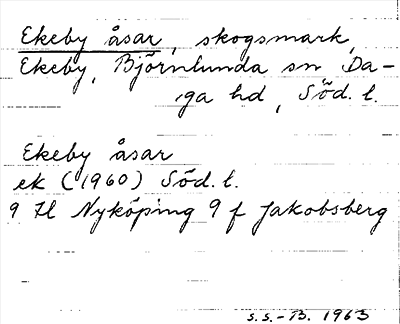 Ekeby åsar, skogsmark,
Ekeby, Björnlunda sn Da-
ga hd, Söd. l.
Ekeby åsar
ek (1960) Söd. l.
9 H Nyköping 9 f Jakobsberg
S.S.-B. 1963